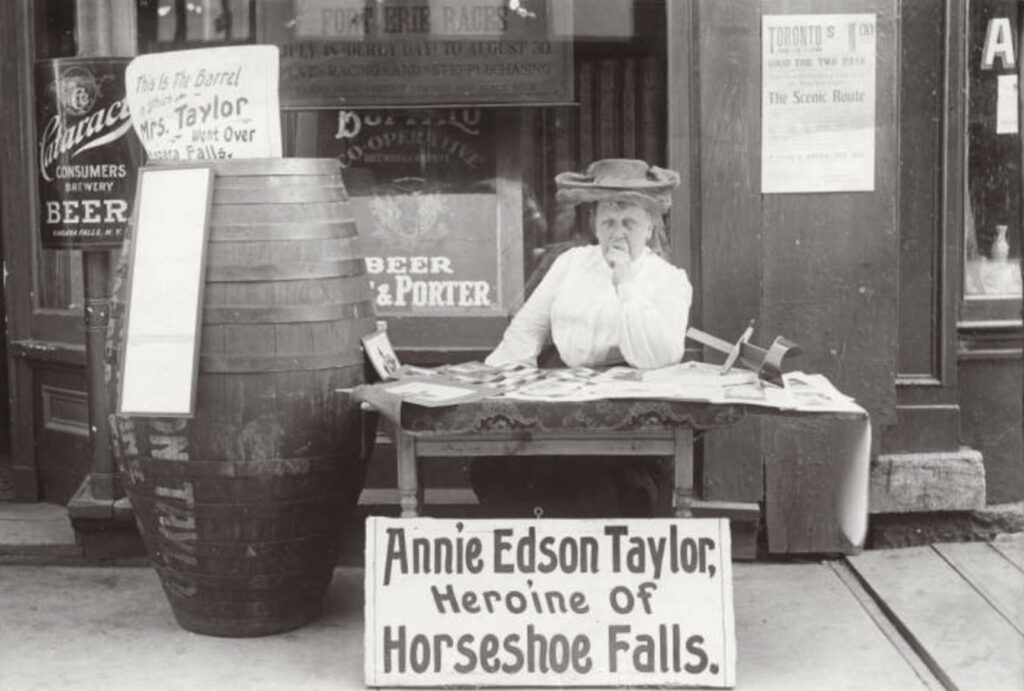 FORT ERIE RACES
JULY 18 (DERBY DAY) TO AUGUST 30
FLATS RACING AND STEEPLECHASING
This Is The Barrel
in Which
Mrs. Taylor
Went Over
Niagara Falls.
Cataract
CONSUMERS
BREWERY
BEER
NIAGARA FALLS, N.Y.
BUFFALO
CO-OPERATIVE
BREWING COMPANY
BEER
& PORTER
TORONTO
GOOD FOR TWO DAYS
The Scenic Route
A
Annie Edson Taylor,
Heroine Of
Horseshoe Falls.